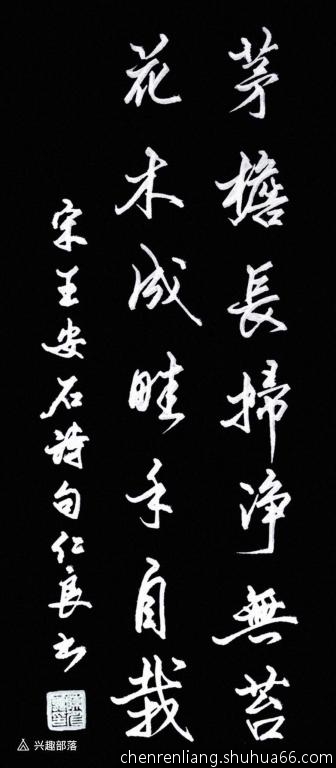 茅檐長掃淨無苔
花木成畦手自栽
宋王安石詩句仁良书
兴趣部落
chenrenliang.shuhua66.com